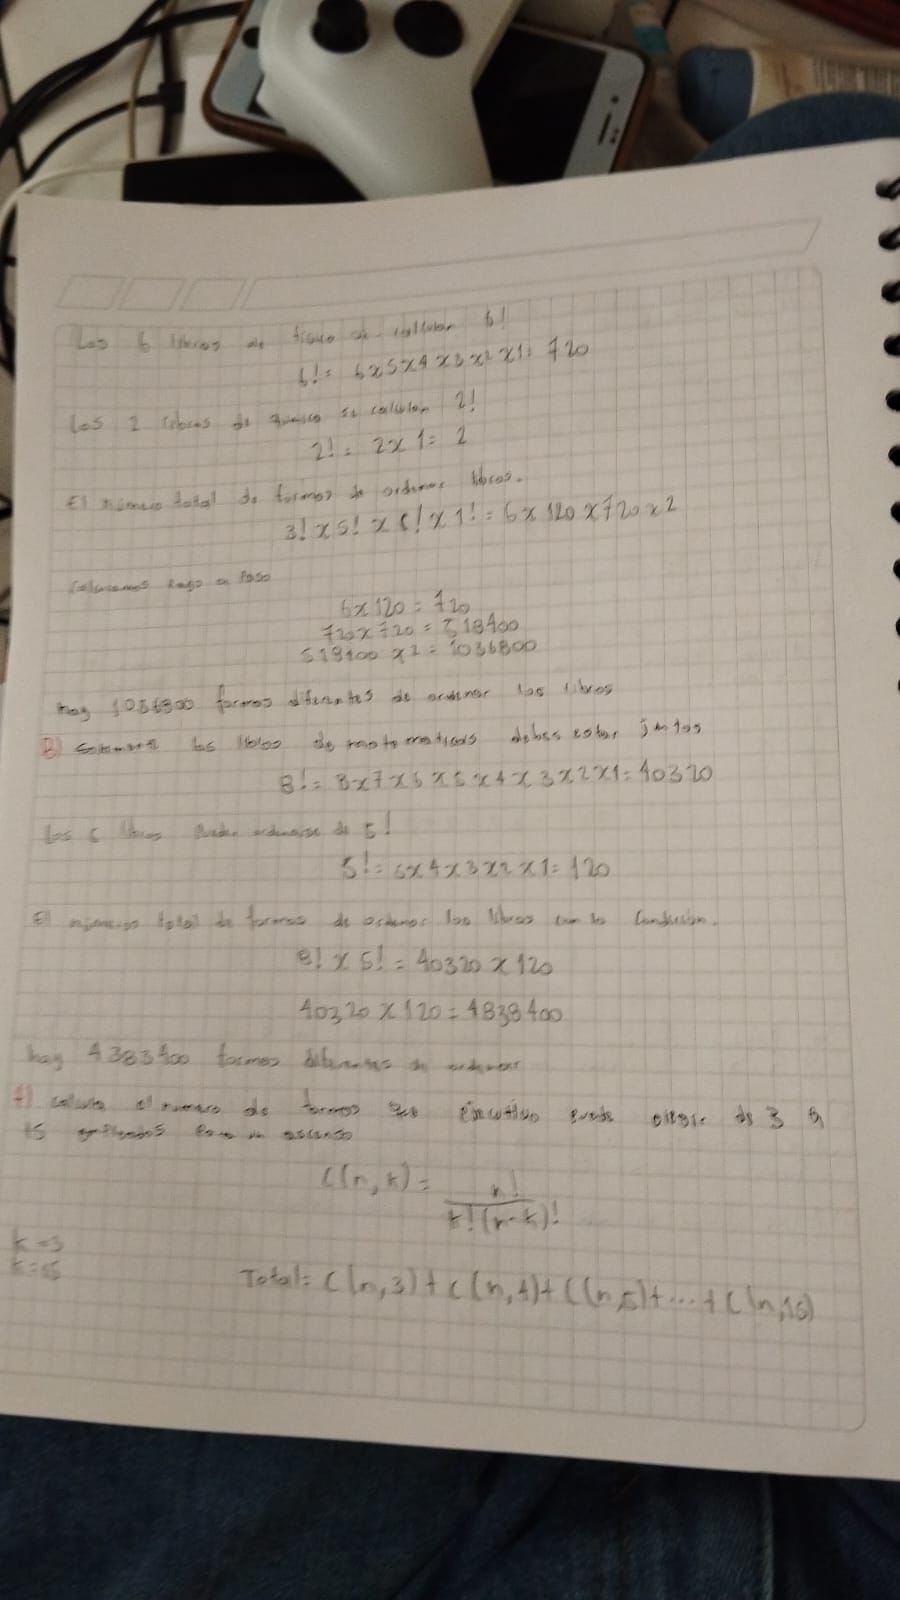 Los 6 libros de fisica se calculan 6!
6! = 6x5x4x3x2x1= 720
Los 2 libros de quimica se calculan 2!
2! = 2x1= 2
El número total de formas de ordenar libros.
3! x 5! x 6! x 1! = 6 x 120 x 720 x 2
Paso a Paso
6x120 = 720
720x720 = 518400
518400 x2 = 1036800
hay 1036800 formas diferentes de ordenar los libros
B) Solamente los libros de matematicas deben estar juntos
8! = 8x7x6x5x4x3x2x1= 40320
Los 5 libros Pueden ordenarse de 5!
5! = 5x4x3x2x1= 120
El número total de formas de ordenar los libros con la Condición.
8! x 5! = 40320 x 120
40320 x 120 = 4838400
hay 4383400 formas diferentes de ordenar
4) calcula el numero de formas que ejecutivo puede elegir de 3 a
15 empleados Para un ascenso
C(n,k) = n!
k!(n-k)!
k=3
k=15
Total= C(n,3)+C(n,4)+C(n,5)+...+C(n,15)